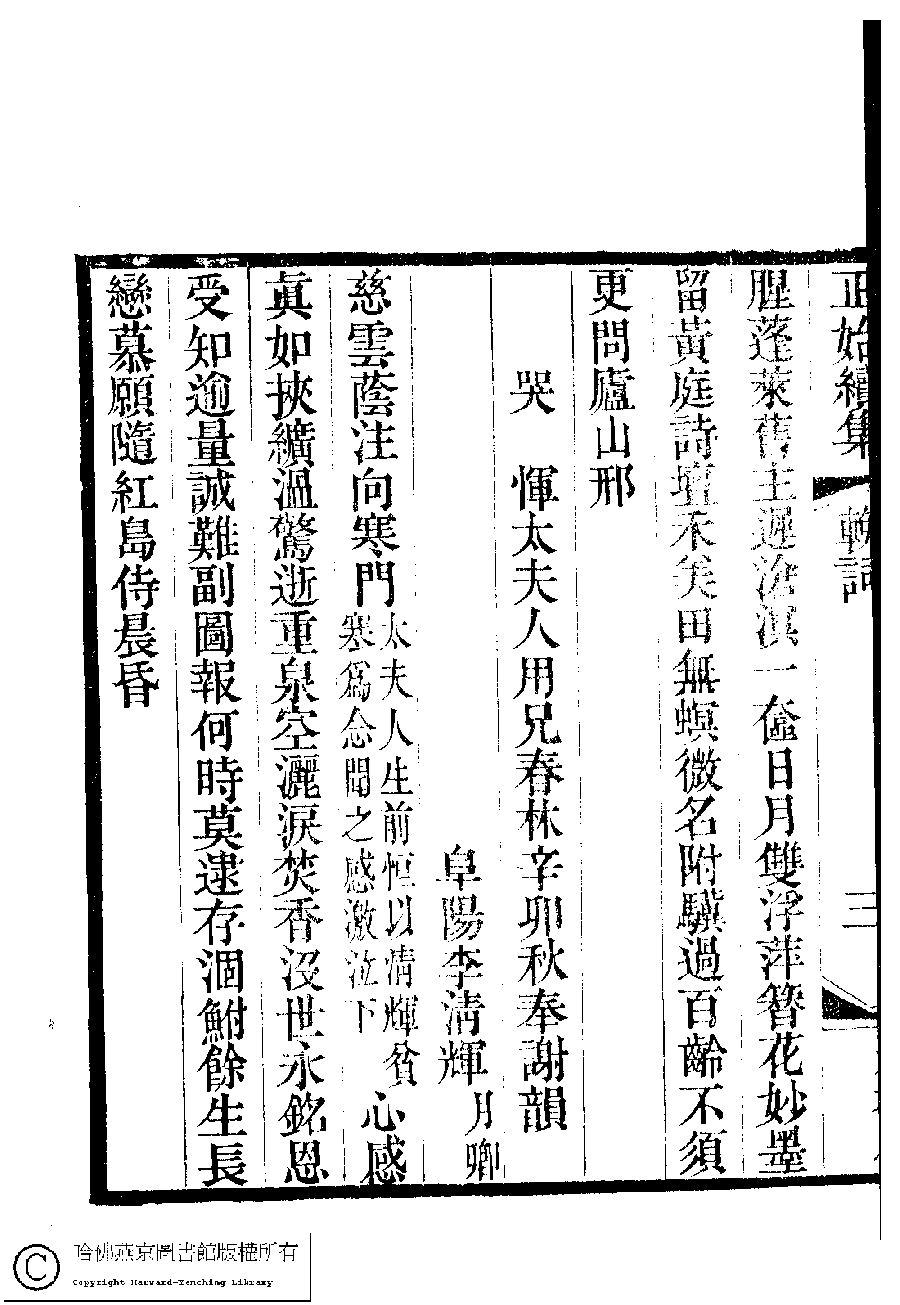 正始續集 輓詞 三
腥蓬萊舊主遲滄溟一奩日月雙浮萍簪花妙墨
留黃庭詩壇禾美田無螟微名附驥過百齡不須
更問廬山邢
哭 惲太夫人用兄春林辛卯秋奉謝韻
阜陽李清輝月卿
慈雲蔭注向寒門太夫人生前恒以清輝貧寒爲念聞之感激泣下心感
眞如挾纊溫驚逝重泉空灑淚焚香沒世永銘恩
受知逾量誠難副圖報何時莫逮存涸鮒餘生長
戀慕願隨紅島侍晨昏
哈佛燕京圖書館版權所有
Copyright Harvard-Yenching Library